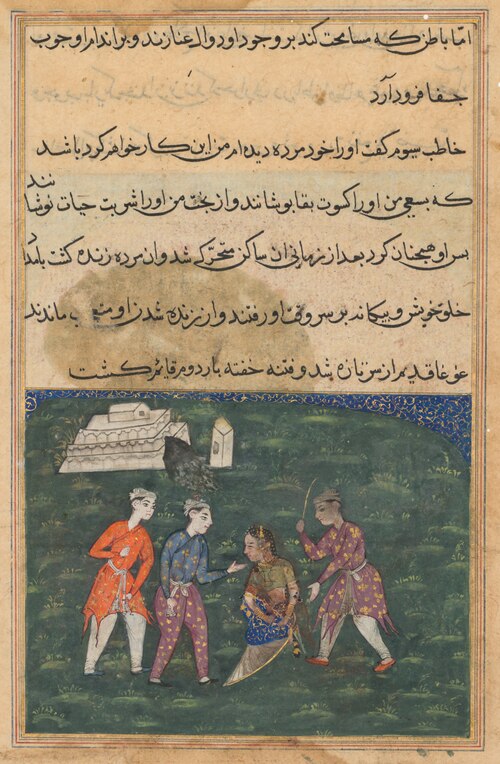 امّا باطن که مسامحت کند بر وجود او دوال عنا زند و بر اندام او چوب
جفا فرود آرد
خاطب سیوم گفت او را خود مرده دیده ام من این کار خواهم کرد باشد
که بسعی من او را کسوت بقا پوشانند و از بخت من او را شربت حیات نوشانند
پس او همچنان کرد بعد از زمانی آن ساکن متحرّک شد و آن مرده زنده کشت
خلق خویش و بیکانه بر سر وقت او رفتند و از زنده شدن او متعجب ماندند
غوغا قدیم از سر تازه شد و فتنه خفته بار دوم قایم کشت